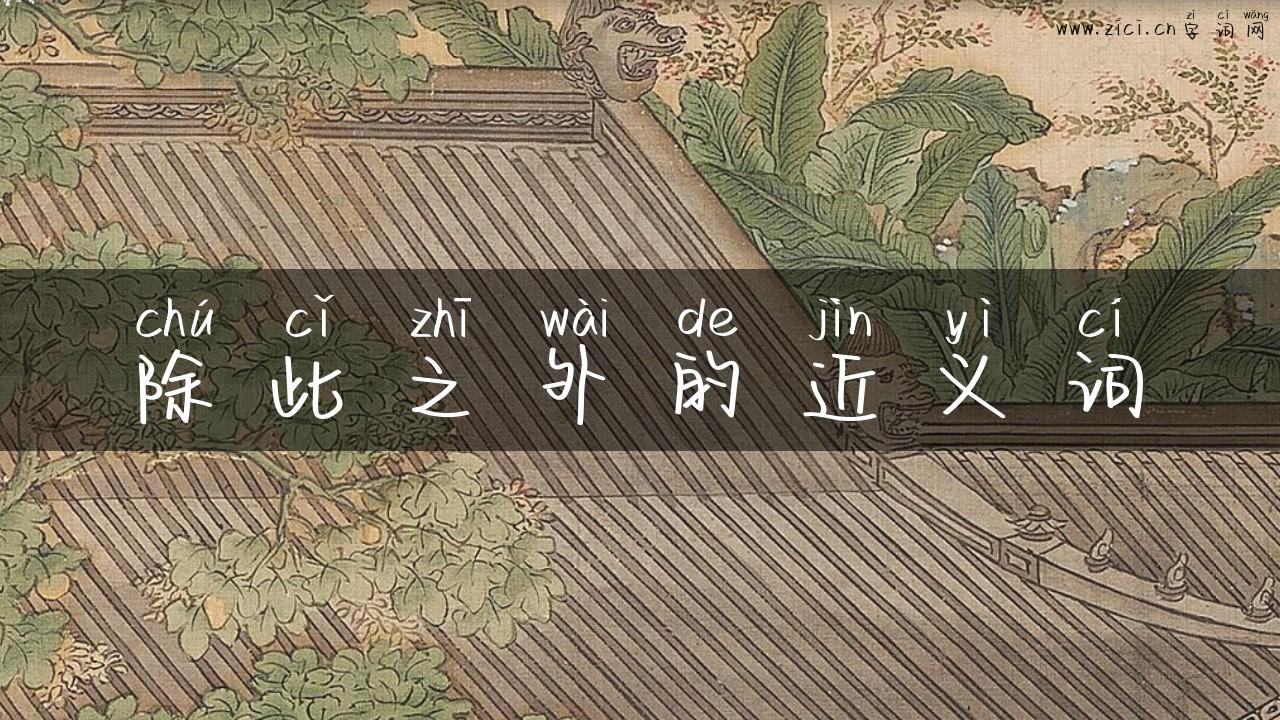 zì cí wǎng
www.zici.cn 字词网
chú cǐ zhī wài de jìn yì cí
除此之外的近义词